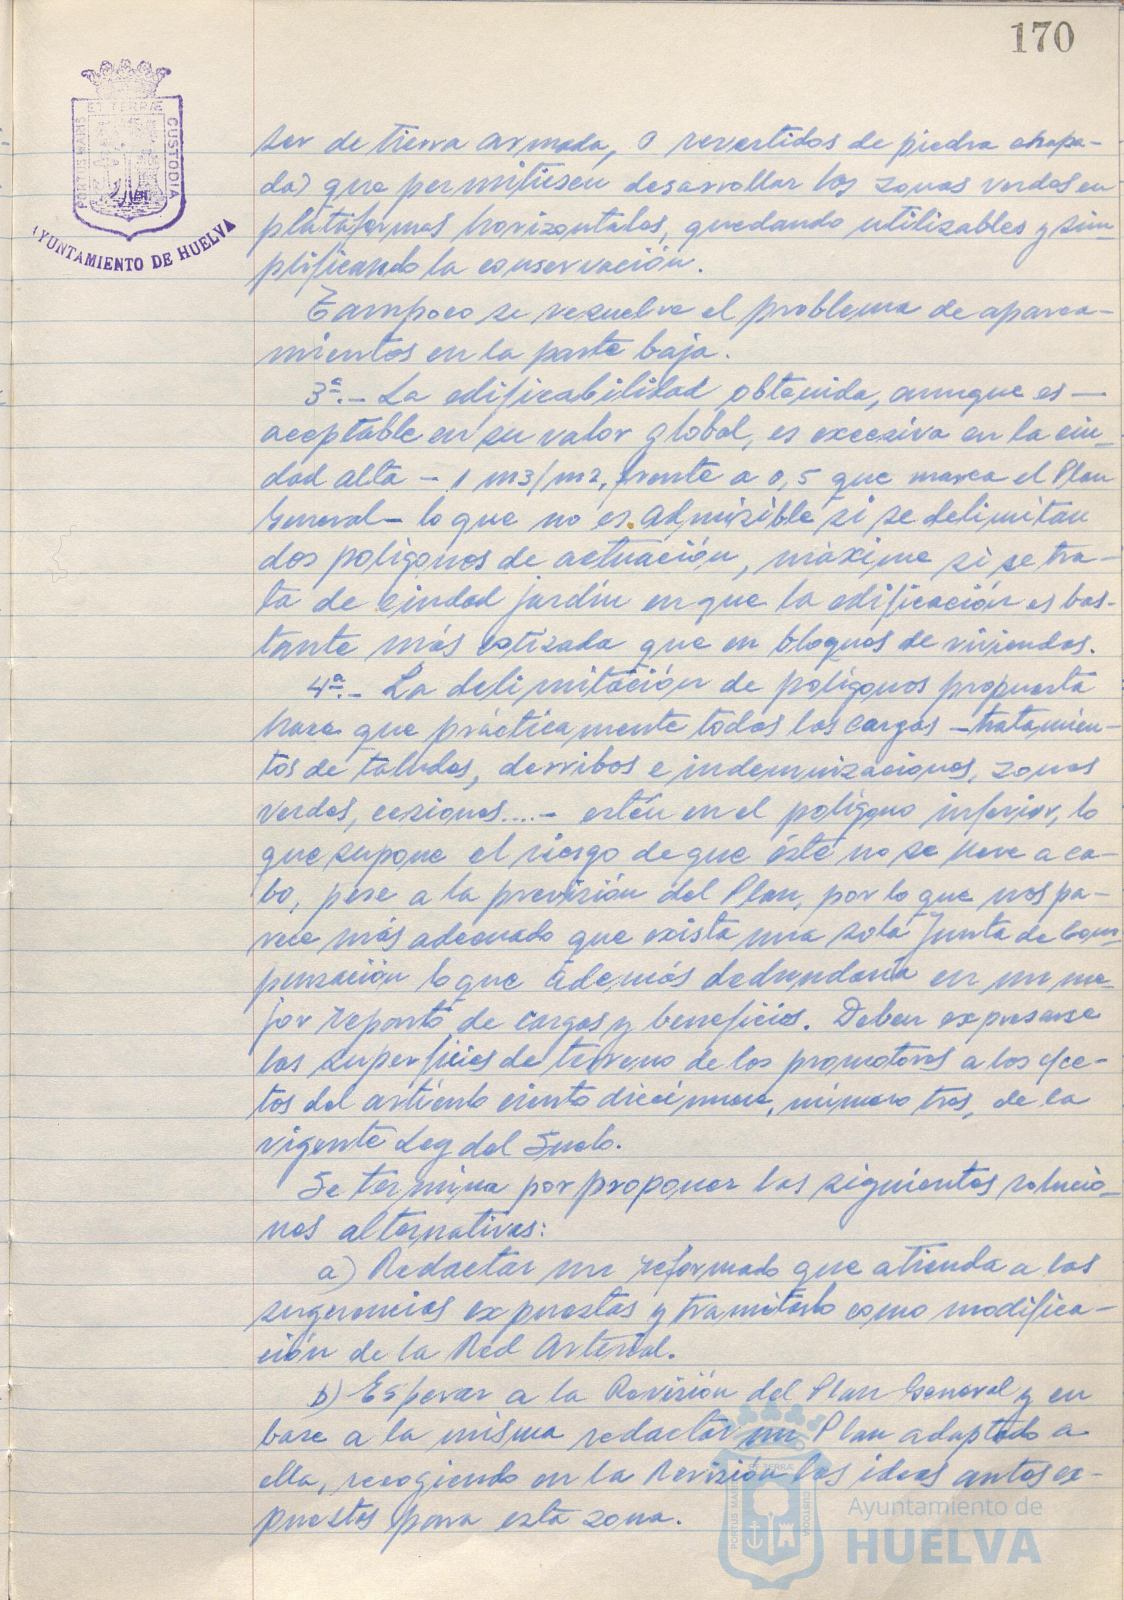 170
PORTUS MARIS ET TERRÆ CUSTODIA
AYUNTAMIENTO DE HUELVA
ser de tierra armada, o revestidos de piedra chapa-
da) que permitiesen desarrollar las zonas verdes en
plataformas horizontales, quedando utilizables y sim-
plificando la conservación.
Tampoco se resuelve el problema de aparca-
mientos en la parte baja.
3ª.- La edificabilidad obtenida, aunque es -
aceptable en su valor global, es excesiva en la ciu-
dad alta - 1 m3/m2, frente a 0,5 que marca el Plan
General - lo que no es admisible si se delimitan
dos polígonos de actuación, máxime si se tra-
ta de ciudad jardín en que la edificación es bas-
tante más cotizada que en bloques de viviendas.
4ª.- La delimitación de polígonos propuesta
hace que prácticamente todas las cargas - tratamien-
tos de taludes, derribos e indemnizaciones, zonas
verdes, cesiones....- estén en el polígono inferior, lo
que supone el riesgo de que éste no se lleve a ca-
bo, pese a la previsión del Plan, por lo que nos pa-
rece más adecuado que exista una sola Junta de Com-
pensación lo que además redundaría en un me-
jor reparto de cargas y beneficios. Deben expresarse
las superficies de terreno de los promotores a los efec-
tos del artículo ciento diecinueve, número tres, de la
vigente Ley del Suelo.
Se termina por proponer las siguientes solucio-
nes alternativas:
a) Redactar un reformado que atienda a las
sugerencias expuestas y tramitarlo como modifica-
ción de la Red Arterial.
b) Esperar a la Revisión del Plan General y en
base a la misma redactar un Plan adaptado a
ella, recogiendo en la Revisión las ideas antes ex-
puestas para esta zona.
Ayuntamiento de
HUELVA